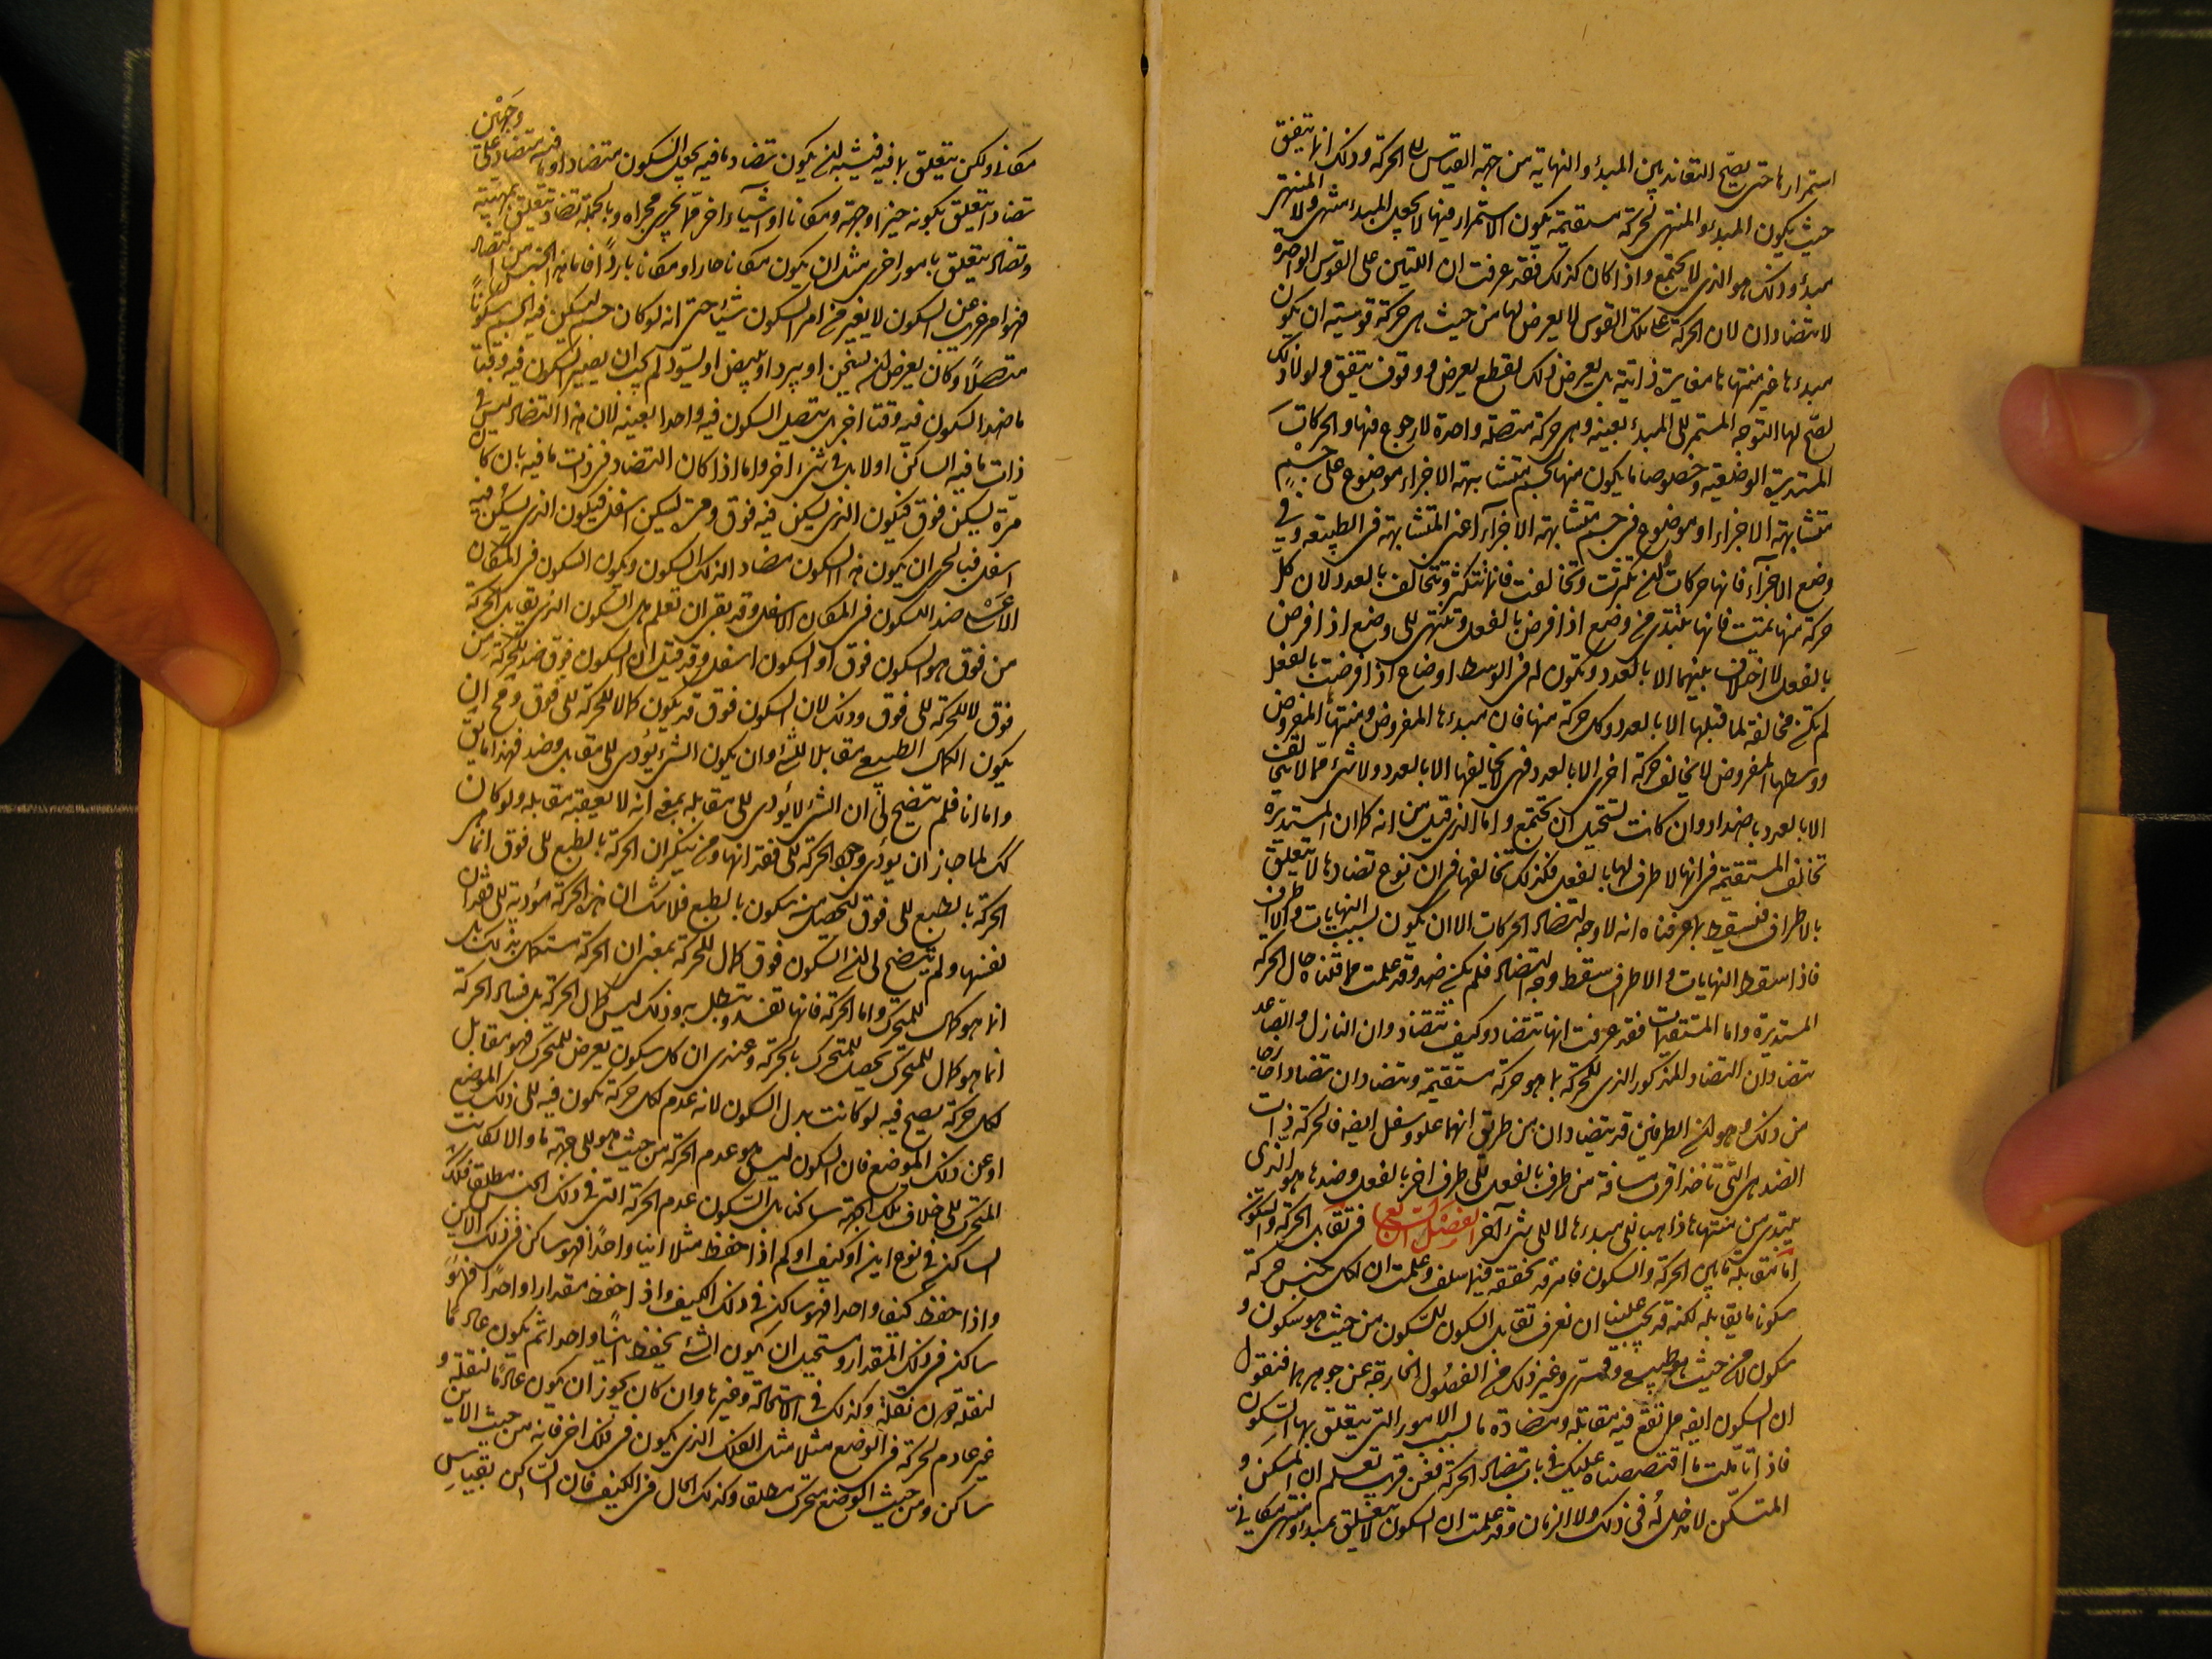 استمرارها حتى يصح التعاند بين المبدء والنهاية من جهة القياس الى الحركة وذلك انما يتفق
حيث يكون المبدء والمنتهى لحركة مستقيمة يكون الاستمرار فيها لا يجعل المبدء منتهى ولا المنتهى
مبدء وذلك هو الذى لا يجتمع واذا كان كذلك فقد عرفت ان اللتين على القوس الواحدة
لا تتضادان لان الحركة على تلك القوس لا يعرض لها من حيث هى حركة قوسية ان يكون
مبدءها غير منتهاها مغايرة ذاتية بل يعرض ذلك لقطع يعرض ووقوف يتفق ولولا ذلك
لصح لها التوجه المستمر الى المبدء بعينه وهى حركة متصلة واحدة لا رجوع فيها والحركات
المستديرة الوضعية وخصوصا ما يكون منها لجسم متشابهة الاجزاء موضوع على جسم
متشابهة الاجزاء او موضوع فى جسم متشابهة الاجزاء اعنى المتشابهة فى الطبيعة وفى
وضع الاجزاء فانها حركات لئن تكثرت وتخالفت فانها تتكثر وتتخالف بالعدد لان كل
حركة منها تمت فانها تبتدى من وضع اذا فرض بالفعل وتنتهى الى وضع اذا فرض
بالفعل لا اختلاف بينهما الا بالعدد وتكون له فى الوسط اوضاع اذا فرضت بالفعل
لم تكن مخالفة لما قبلها الا بالعدد وكل حركة منها فان مبدءها المفروض ومنتهاها المفروض
ووسطها المفروض لا يخالف حركة اخرى الا بالعدد فهى لا يخالفها الا بالعدد ولا شئ مما لا يخالف
الا بالعدد باضداد وان كانت تستحيل ان تجتمع واما الذى قيل من انه كما ان المستديرة
تخالف المستقيمة فى انها لا طرف لها بالفعل فكذلك تخالفها فى ان نوع تضادها لا يتعلق
بالاطراف فيسقط بما عرفناه انه لا وجه لتضاد الحركات الا ان يكون بسبب النهايات والاطراف
فاذا سقط النهايات والاطراف سقط وجه التضاد فلم يكن ضد وقد علمت مما قلناه حال الحركة
المستديرة واما المستقيمات فقد عرفت انها تتضاد وكيف تتضاد وان النازل والصاعد
يتضادان التضاد المذكور الذى للحركة بما هو حركة مستقيمة ويتضادان تضادا خارجا
من ذلك وهو ان الطرفين قد يتضادان من طريق انهما علو وسفل ايضا فالحركة ذات
الضد هى التى تاخذ اقرب مسافة من طرف بالفعل الى طرف اخر بالفعل وضدها هو الذى
يبتدى من منتهاها ذاهبا الى مبدءها لا الى شئ آخر الفصل السابع فى تقابل الحركة والسكون
اما تقابلة ما بين الحركة والسكون فامر قد تحققته فيما سلف وعلمت ان لكل جنس حركة
سكونا ما يقابله لكنه قد يجب علينا ان نعرف تقابل السكون للسكون من حيث هو سكون و
سكون لا من حيث هو طبيعى وقسرى وغير ذلك من الفصول الخارجة عن جوهرهما فنقول
ان السكون ايضا هل تقع فيه مقابلة ومضادة ما لسبب الامور التى يتعلق بها السكون
فاذا تأملت ما اقتصصناه عليك فى باب تضاد الحركة فعن قريب تعلم ان المسكن و
المتسكن لا مدخل له فى ذلك ولا الزمان وقد علمت ان السكون لا يتعلق بمبدء ومنتهى مكانىّ
مكانى ولكن يتعلق بما فيه فيشبه ان يكون تضاد ما فيه يجعل السكون متضادا وما فيه متضاد على وجهين
تضاد يتعلق بكونه حيزا وجهة ومكانا او اشياء اخر مما يجرى مجراه وبالجملة تضاد يتعلق بمهيته
وتضاد يتعلق بامور اخرى مثل ان يكون مكانا حارا ومكانا باردا فاما هذا الجنس من التضاد
فهو امر غريب عن السكون لا يغير من امر السكون شيئا حتى انه لو كان جسم يسكن فيه الجسم سكونا
متصلا وكان يعرض له ان يسخن او يبرد او يبيض او يسود لم يجب ان يصير السكون فيه وقتا
ما ضد السكون فيه وقتا اخر بل يتصل السكون فيه واحدا بعينه لان هذا التضاد ليس فى
ذات ما فيه الساكن اولا بل فى شئ اخر واما اذا كان التضاد فى ذات ما فيه بان كان
مرة يسكن فوق فيكون الذى يسكن فيه فوق ومرة يسكن اسفل فيكون الذى يسكن فيه
اسفل فبالحرى ان يكون هذا السكون مضادا لذلك السكون ويكون السكون فى المكان
الاعلى ضد السكون فى المكان الاسفل وقد بقى ان تعلم هل السكون الذى يقابل الحركة
من فوق هو السكون فوق او السكون اسفل وقد قيل ان السكون فوق ضد للحركة من
فوق لا للحركة الى فوق وذلك لان السكون فوق قد يكون كمالا للحركة الى فوق ومح ان
يكون الكمال الطبيعى مقابلا للشئ وان يكون الشئ يؤدى الى مقابل وضد فهذا ما يق
واما انا فلم يتضح لى ان الشئ لا يؤدى الى مقابله بمعنى انه لا يعقبه مقابله ولو كان
كك لما جاز ان يؤدى وجود الحركة الى فقدانها ومن ينكر ان الحركة بالطبع الى فوق انما هى
الحركة بالطبع الى فوق ليحصل منه سكون بالطبع فلا شك ان هذه الحركة مؤدية الى فقدان
نفسها ولم يتضح لى ان السكون فوق كمال للحركة بمعنى ان الحركة مستكمل بذلك بل
انما هو كمال للمتحرك واما الحركة فانها تفسد وتبطل به وذلك ليس كمال الحركة بل فساد الحركة
انما هو كمال للمتحرك يحصل للمتحرك بالحركة وعندى ان كل سكون يعرض للمتحرك فهو مقابل
لكل حركة يصح فيه لو كانت بدل السكون لانه عدم لكل حركة تكون فيه الى ذلك الموضع
او عن ذلك الموضع فان السكون ليس هو عدم الحركة من حيث هو الى جهة ما والا لكانت
المتحرك الى خلاف تلك الجهة ساكنا بل السكون عدم الحركة التى فى ذلك الجنس مطلقا فلك
الساكن فى نوع اين او كيف او كم اذا حفظ مثلا اينا واحدا فهو ساكن فى ذلك الاين
واذا حفظ كيفا واحدا فهو ساكن فى ذلك الكيف واذا حفظ مقدارا واحدا فهو
ساكن فى ذلك المقدار ويستحيل ان يكون الشئ يحفظ اينا واحدا ثم يكون عادما
لنقلة دون نقلة وكذلك فى الاستحالة وغيرها وان كان يجوز ان يكون عادما لنقلة و
غير عادم لحركة فى الوضع مثلا مثل الفلك الذى يكون فى فلك اخر فانه من حيث الاين
ساكن ومن حيث الوضع متحرك مطلقا وكذلك الحال فى الكيف فان الساكن بقياس